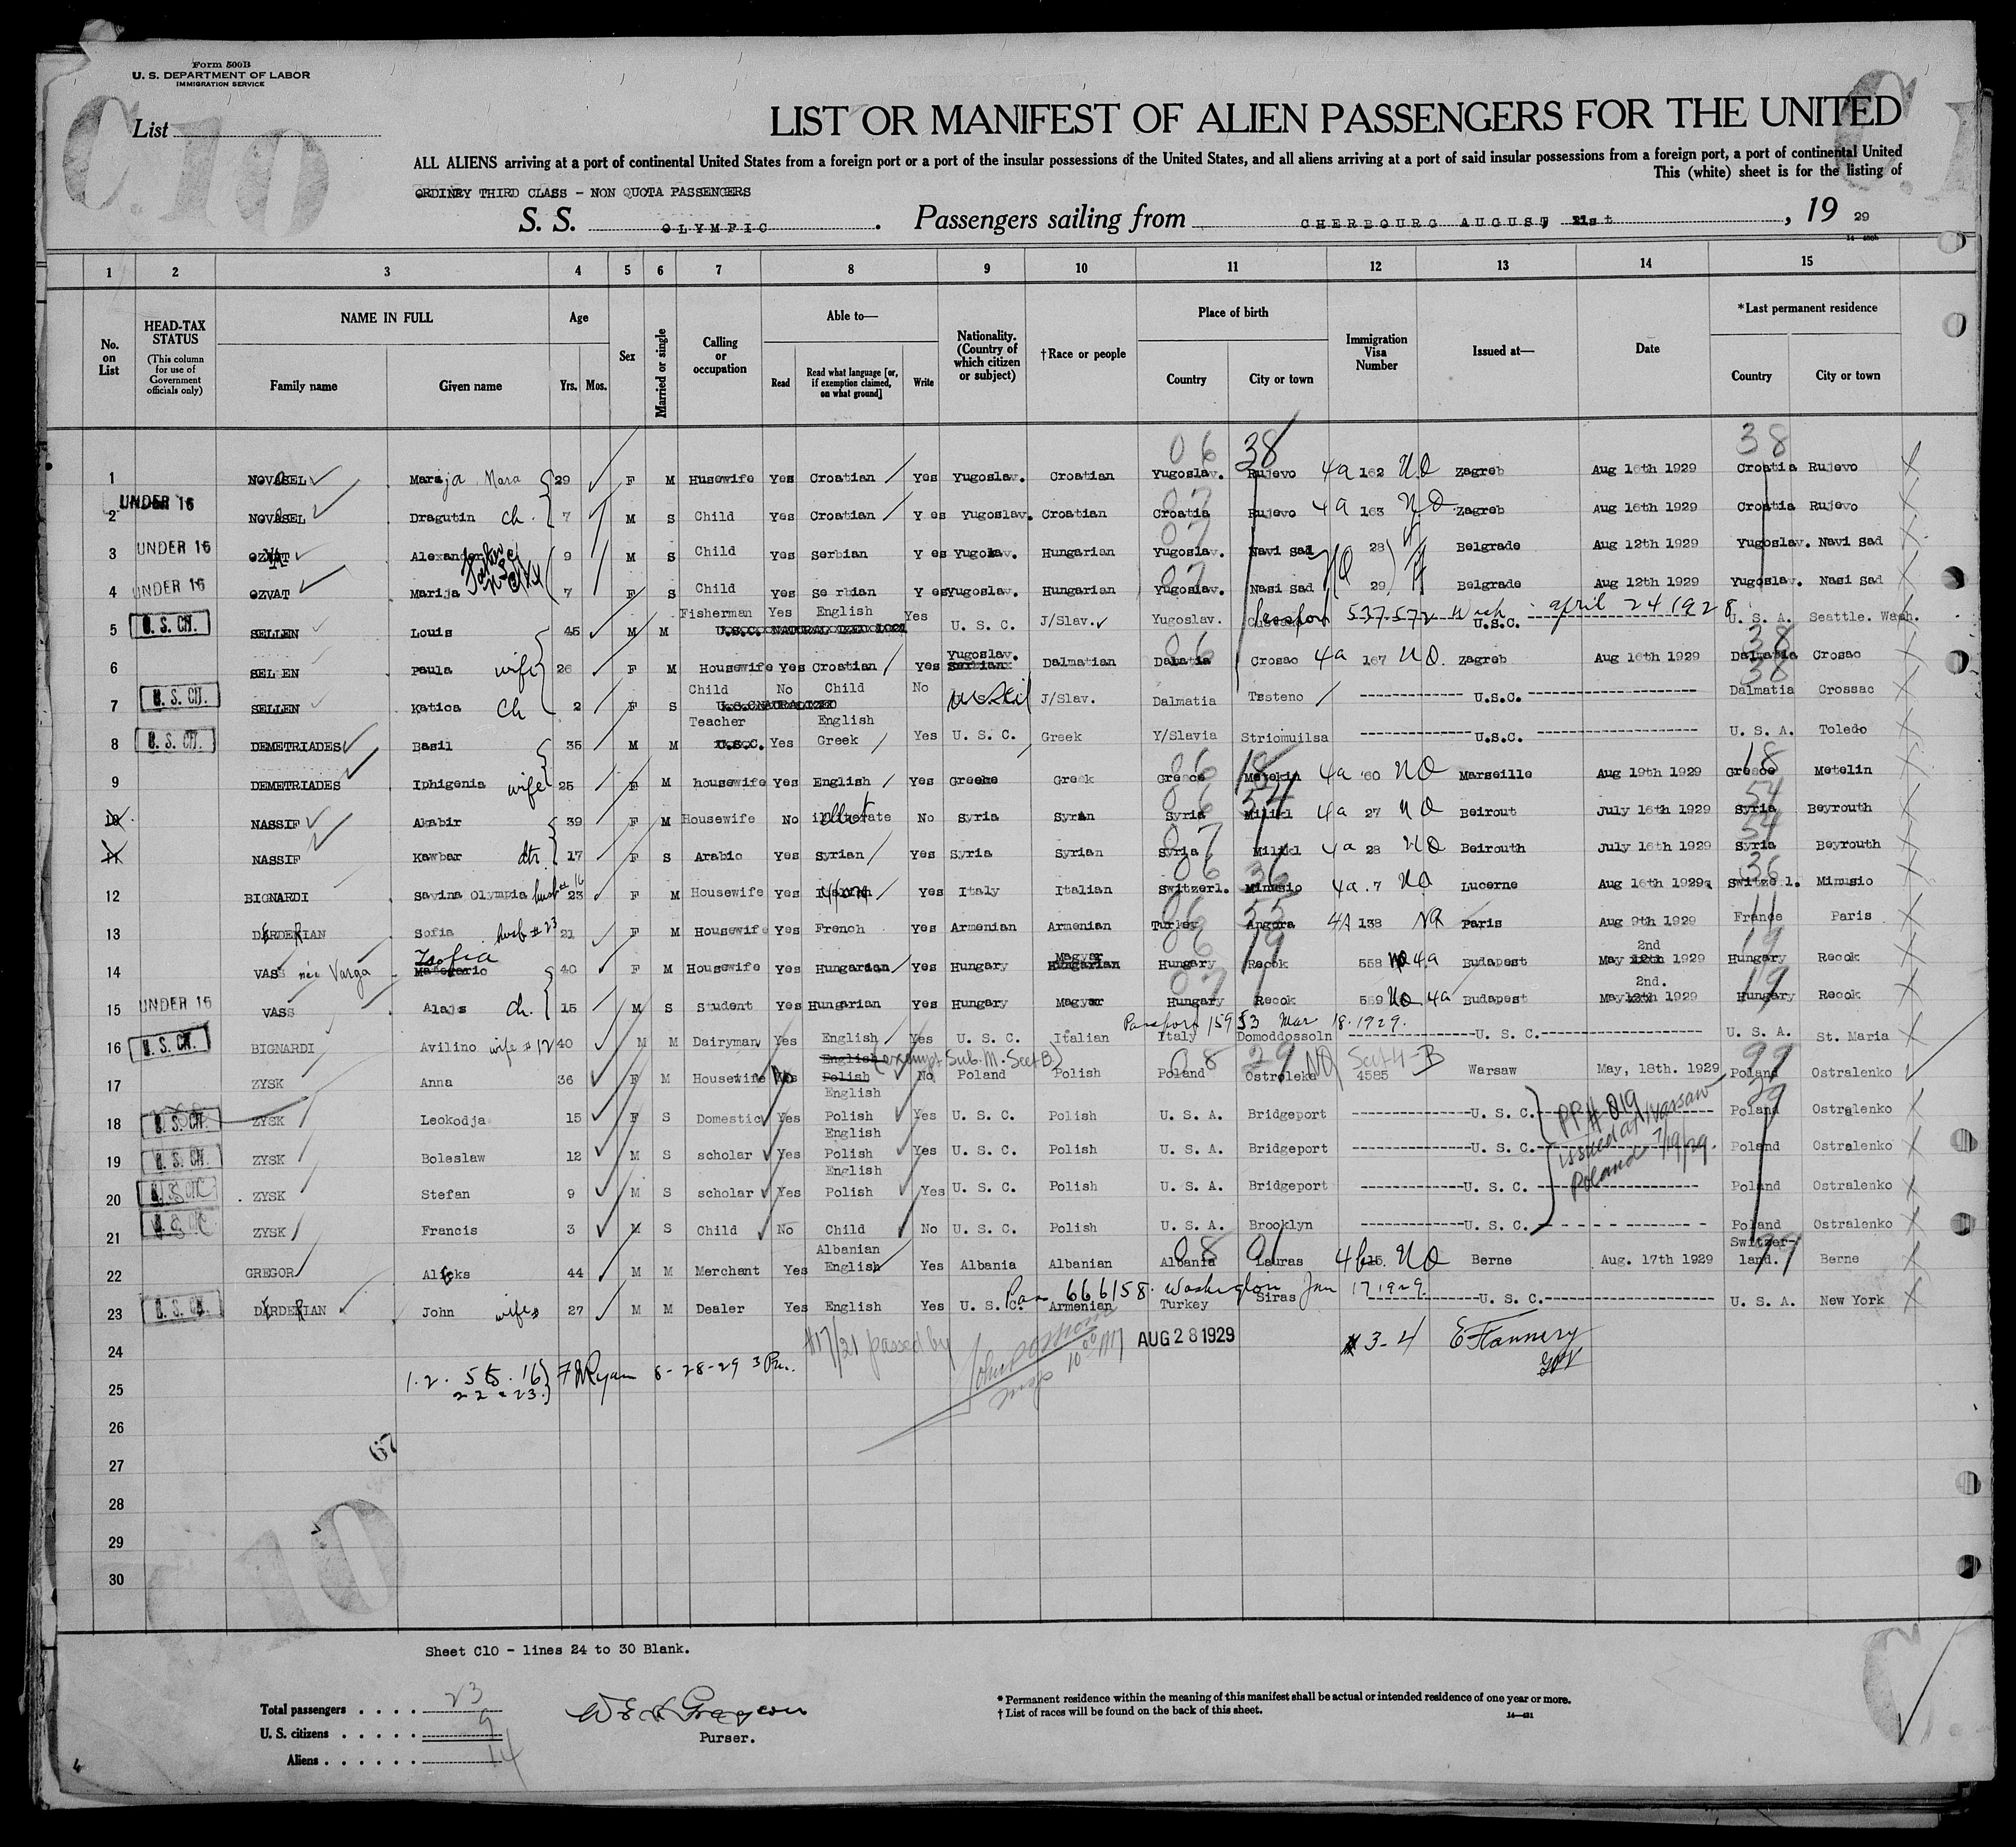 Form 500B
U. S. DEPARTMENT OF LABOR
IMMIGRATION SERVICE
C.10
List
LIST OR MANIFEST OF ALIEN PASSENGERS FOR THE UNITED
ALL ALIENS arriving at a port of continental United States from a foreign port or a port of the insular possessions of the United States, and all aliens arriving at a port of said insular possessions from a foreign port, a port of continental United
This (white) sheet is for the listing of
ORDINRY THIRD CLASS - NON QUOTA PASSENGERS
S. S. OLYMPIC. Passengers sailing from CHERBOURG AUGUST, 21st, 19 29
1 2 3 4 5 6 7 8 9 10 11 12 13 14 15
No. on List
HEAD-TAX STATUS (This column for use of Government officials only)
NAME IN FULL Family name Given name
Age Yrs. Mos.
Sex
Married or single
Calling or occupation
Able to— Read Read what language [or, if exemption claimed, on what ground] Write
Nationality. (Country of which citizen or subject)
†Race or people
Place of birth Country City or town
Immigration Visa Number
Issued at—
Date
*Last permanent residence Country City or town
06 38 38
1 NOVASEL Maraja Mara 29 F M Husewife Yes Croatian Yes Yugoslav. Croatian Yugoslav. Rujevo 4a 162 NQ Zagreb Aug 16th 1929 Croatia Rujevo
2 UNDER 16 NOVASEL Dragutin ch. 7 M S Child Yes Croatian Y es Yugoslav. Croatian Croatia Rujevo 4a 163 NQ Zagreb Aug 16th 1929 Croatia Rujevo
3 UNDER 16 Alexander 9 M S Child Yes Serbian Y es Yugoslav. Hungarian Yugoslav. Navi Sad 28 Belgrade Aug 12th 1929 Yugoslav. Navi Sad
4 UNDER 16 OZVAT Marija 7 F S Child Yes Se rbian Y es Yugoslav. Hungarian Yugoslav. Nasi Sad NQ 29 Belgrade Aug 12th 1929 Yugoslav. Nasi Sad
5 U. S. CIT. SELLEN Louis 45 M M Fisherman Yes English Yes U. S. C. J/Slav. Yugoslav. Passport 537572 Wash. april 24 1928 U.S.C. U. S. A. Seattle. Wash.
6 SEL EN Paula wife 26 F M Housewife Yes Croatian Yes Yugoslav. Dalmatian Crosac 4a 167 NQ. Zagreb Aug 16th 1929 Dalmatia Crosac
7 U. S. CIT. SELLEN Katica Ch 2 F S Child No Child No J/Slav. Dalmatia Tssteno U.S.C. Dalmatia Crossac
8 U. S. CIT. DEMETRIADES Basil 35 M M Teacher U.S.C. Yes English Greek Yes U. S. C. Greek Y/Slavia Striomuilsa U.S.C. U. S. A. Toledo
9 DEMETRIADES Iphigenia wife 25 F M housewife Yes English Yes Greece Greek Greece Metekin 4a 60 NQ Marseille Aug 19th 1929 Greece Metelin
10 NASSIF Akabir 39 F M Housewife No illiterate No Syria Syran Syria 4a 27 NQ Beirout July 16th 1929 Syria Beyrouth
11 NASSIF Kawbar dtr 17 F S Arabic Yes Syrian Yes Syria Syrian Syria 4a 28 NQ Beirouth July 16th 1929 Syria Beyrouth
12 BIGNARDI Savina Olympia husb # 16 23 F M Housewife Yes Yes Italy Italian Switzerl. Minusio 4a. 7 NQ Lucerne Aug 16th 1929 Switze l. Minusio
13 Sofia husb # 23 21 F M Housewife Yes French Yes Armenian Armenian Turkey Angora 4A 138 NQ Paris Aug 9th 1929 France Paris
14 VASS née Varga Zsofia 40 F M Housewife Yes Hungarian Yes Hungary Magyar Hungarian Hungary Recok 558 NQ 4a Budapest May 2nd 12th 1929 Hungary Recok
15 UNDER 16 VASS Alajs ch. 15 M S Student Yes Hungarian Yes Hungary Magyar Hungary Recok 559 NQ 4a Budapest May 2nd. 12th 1929 Hungary Recok
Passport 15953 Mar 18. 1929.
16 U. S. CIT. BIGNARDI Avilino wife # 12 40 M M Dairyman Yes English Yes U. S. C. Italian Italy Domoddossoln U. S. C. U. S. A. St. Maria
17 ZYSK Anna 36 F M Housewife No English Polish (exempt Sub. M. Sect B.) No Poland Polish Poland Ostroleka NQ Sect 4-B 4585 Warsaw May, 18th. 1929 Poland Ostralenko
18 U. S. CIT. ZYSK Leokodja 15 F S Domestic Yes English Polish Yes U. S. C. Polish U. S. A. Bridgeport U. S. C. Poland Ostralenko
19 U. S. CIT. ZYSK Boleslaw 12 M S scholar Yes English Polish Yes U. S. C. Polish U. S. A. Bridgeport U. S. C. Poland Ostralenko
20 U. S. CIT. ZYSK Stefan 9 M S scholar Yes English Polish Yes U. S. C. Polish U. S. A. Bridgeport U. S. C. Poland Ostralenko
21 U. S. CIT. ZYSK Francis 3 M S Child No Child No U. S. C. Polish U. S. A. Brooklyn U. S. C. Poland Ostralenko
PP# 019 issued at Warsaw Poland 7/19/29.
22 GREGOR Aleks 44 M M Merchant Yes Albanian English Yes Albania Albanian Albania Lauras 4b 15 NQ Berne Aug. 17th 1929 Switzer-land. Berne
23 U. S. CIT. John wife 27 M M Dealer Yes English Yes U. S. C. Armenian Turkey Siras U. S. C. U. S. A. New York
Pas 666158. Washington Jan 17 1929.
24 #17/21 passed by AUG 28 1929 3-4 E Flannery
25 1. 2. 16 22 - 23. Ryan 8-28-29 3 Pm.
26
27
67
28
29
30
C10
Sheet C10 - lines 24 to 30 Blank.
Total passengers . . . . 23
U. S. citizens . . . . . 9
Aliens . . . . . . 14
Purser.
* Permanent residence within the meaning of this manifest shall be actual or intended residence of one year or more.
† List of races will be found on the back of this sheet.